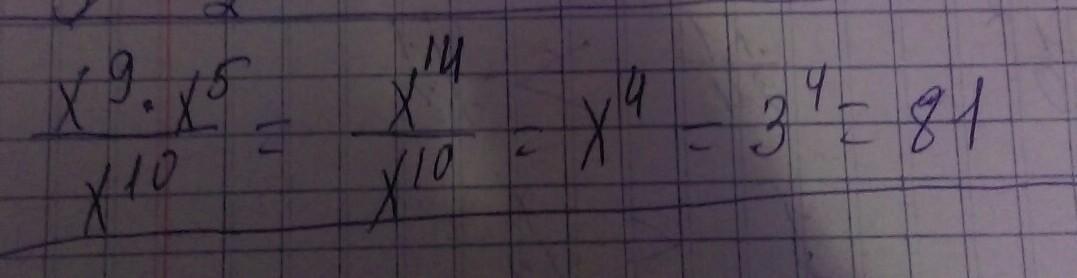 x⁹·x⁵/x¹⁰ = x¹⁴/x¹⁰ = x⁴ = 3⁴ = 81